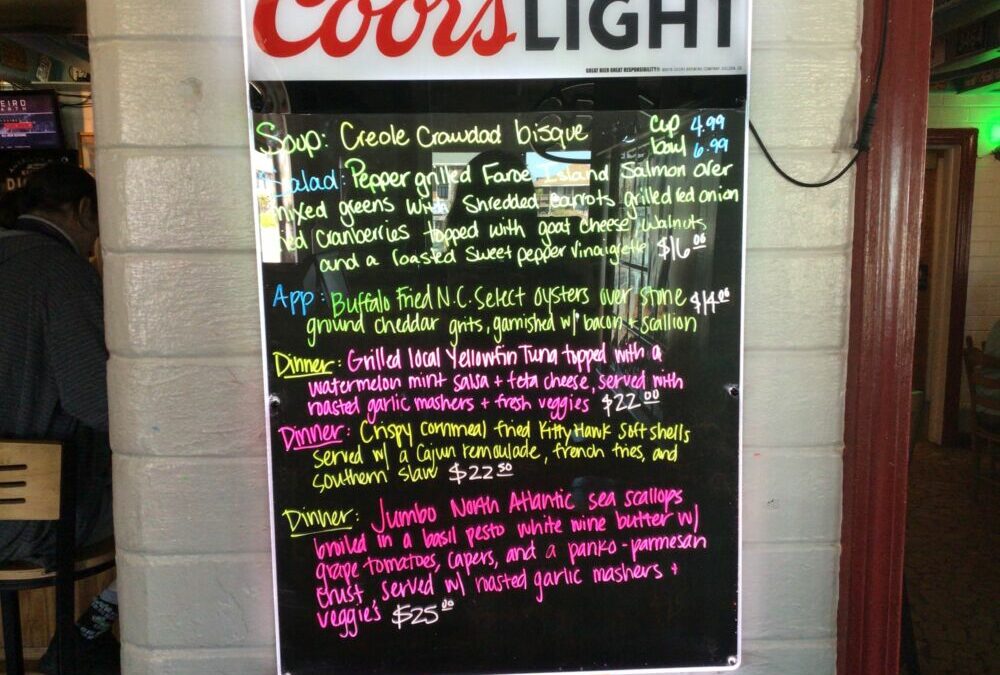 Coors LIGHT
GREAT BEER GREAT RESPONSIBILITY®
Soup: Creole Crawdad bisque cup 4.99
bowl 6.99
Salad: Pepper grilled Faroe Island Salmon over
mixed greens with Shredded carrots grilled red onion
dried cranberries topped with goat cheese, walnuts
and a roasted sweet pepper vinaigrette $16.00
App: Buffalo Fried N.C. Select oysters over stone $14.00
ground cheddar grits, garnished w/ bacon + scallion
Dinner: Grilled local Yellowfin Tuna topped with a
watermelon mint salsa + feta cheese, served with
roasted garlic mashers + fresh veggies $22.00
Dinner: Crispy cornmeal fried Kitty Hawk Soft shells
served w/ a Cajun remoulade, french fries, and
southern slaw $22.50
Dinner: Jumbo North Atlantic sea scallops
broiled in a basil pesto white wine butter w/
grape tomatoes, capers, and a panko-parmesan
crust, served w/ roasted garlic mashers +
veggies $25.00